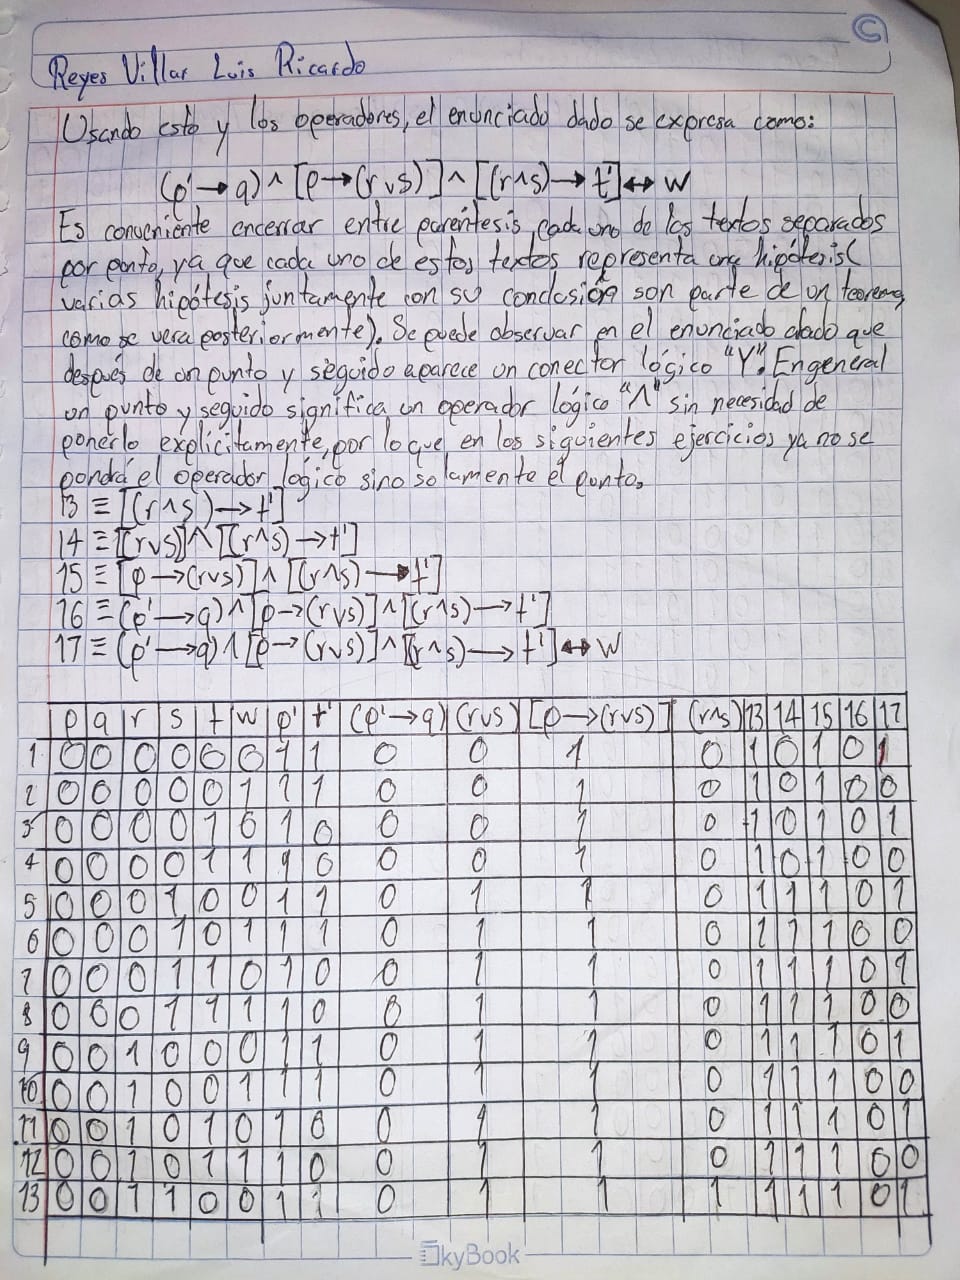 C
Reyes Villar Luis Ricardo
Usando esto y los operadores, el enunciado dado se expresa como:
(p'→q)∧[p→(r∨s)]∧[(r∧s)→t']↔w
Es conveniente encerrar entre paréntesis, cada uno de los textos separados
por punto, ya que cada uno de estos textos representa una hipótesis(
varias hipótesis juntamente con su conclusión son parte de un teorema,
como se vera posteriormente). Se puede observar en el enunciado dado que
después de un punto y séguido aparece un conector lógico "Y". En general
un punto y seguido significa un operador lógico "Λ" sin necesidad de
ponerlo explícitamente, por lo que en los siguientes ejercicios ya no se
pondrá el operador lógico sino solamente el punto.
13 ≡ [(r∧s)→t']
14 ≡ [(r∨s)]∧[(r∧s)→t']
15 ≡ [p→(r∨s)]∧[(r∧s)→t']
16 ≡ (p'→q)∧[p→(r∨s)]∧[(r∧s)→t']
17 ≡ (p'→q)∧[p→(r∨s)]∧[(r∧s)→t']↔w
p q r s t w p' t' (p'→q) (r∨s) [p→(r∨s)] (r∧s) 13 14 15 16 17
1 0 0 0 0 0 0 1 1 0 0 1 0 1 0 1 0 1
2 0 0 0 0 0 1 1 1 0 0 1 0 1 0 1 0 0
3 0 0 0 0 1 0 1 0 0 0 1 0 1 0 1 0 1
4 0 0 0 0 1 1 1 0 0 0 1 0 1 0 1 0 0
5 0 0 0 1 0 0 1 1 0 1 1 0 1 1 1 0 1
6 0 0 0 1 0 1 1 1 0 1 1 0 1 1 1 0 0
7 0 0 0 1 1 0 1 0 0 1 1 0 1 1 1 0 1
8 0 0 0 1 1 1 1 0 0 1 1 0 1 1 1 0 0
9 0 0 1 0 0 0 1 1 0 1 1 0 1 1 1 0 1
10 0 0 1 0 0 1 1 1 0 1 1 0 1 1 1 0 0
11 0 0 1 0 1 0 1 0 0 1 1 0 1 1 1 0 1
12 0 0 1 0 1 1 1 0 0 1 1 0 1 1 1 0 0
13 0 0 1 1 0 0 1 1 0 1 1 1 1 1 1 0 1
SkyBook